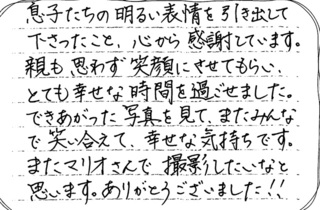 息子たちの明るい表情を引き出して
下さったこと、心から感謝しています。
親も思わず笑顔にさせてもらい、
とても幸せな時間を過ごせました。
できあがった写真を見て、またみんな
で笑い合えて、幸せな気持ちです。
またマリオさんで撮影したいなと
思います。ありがとうございました!!